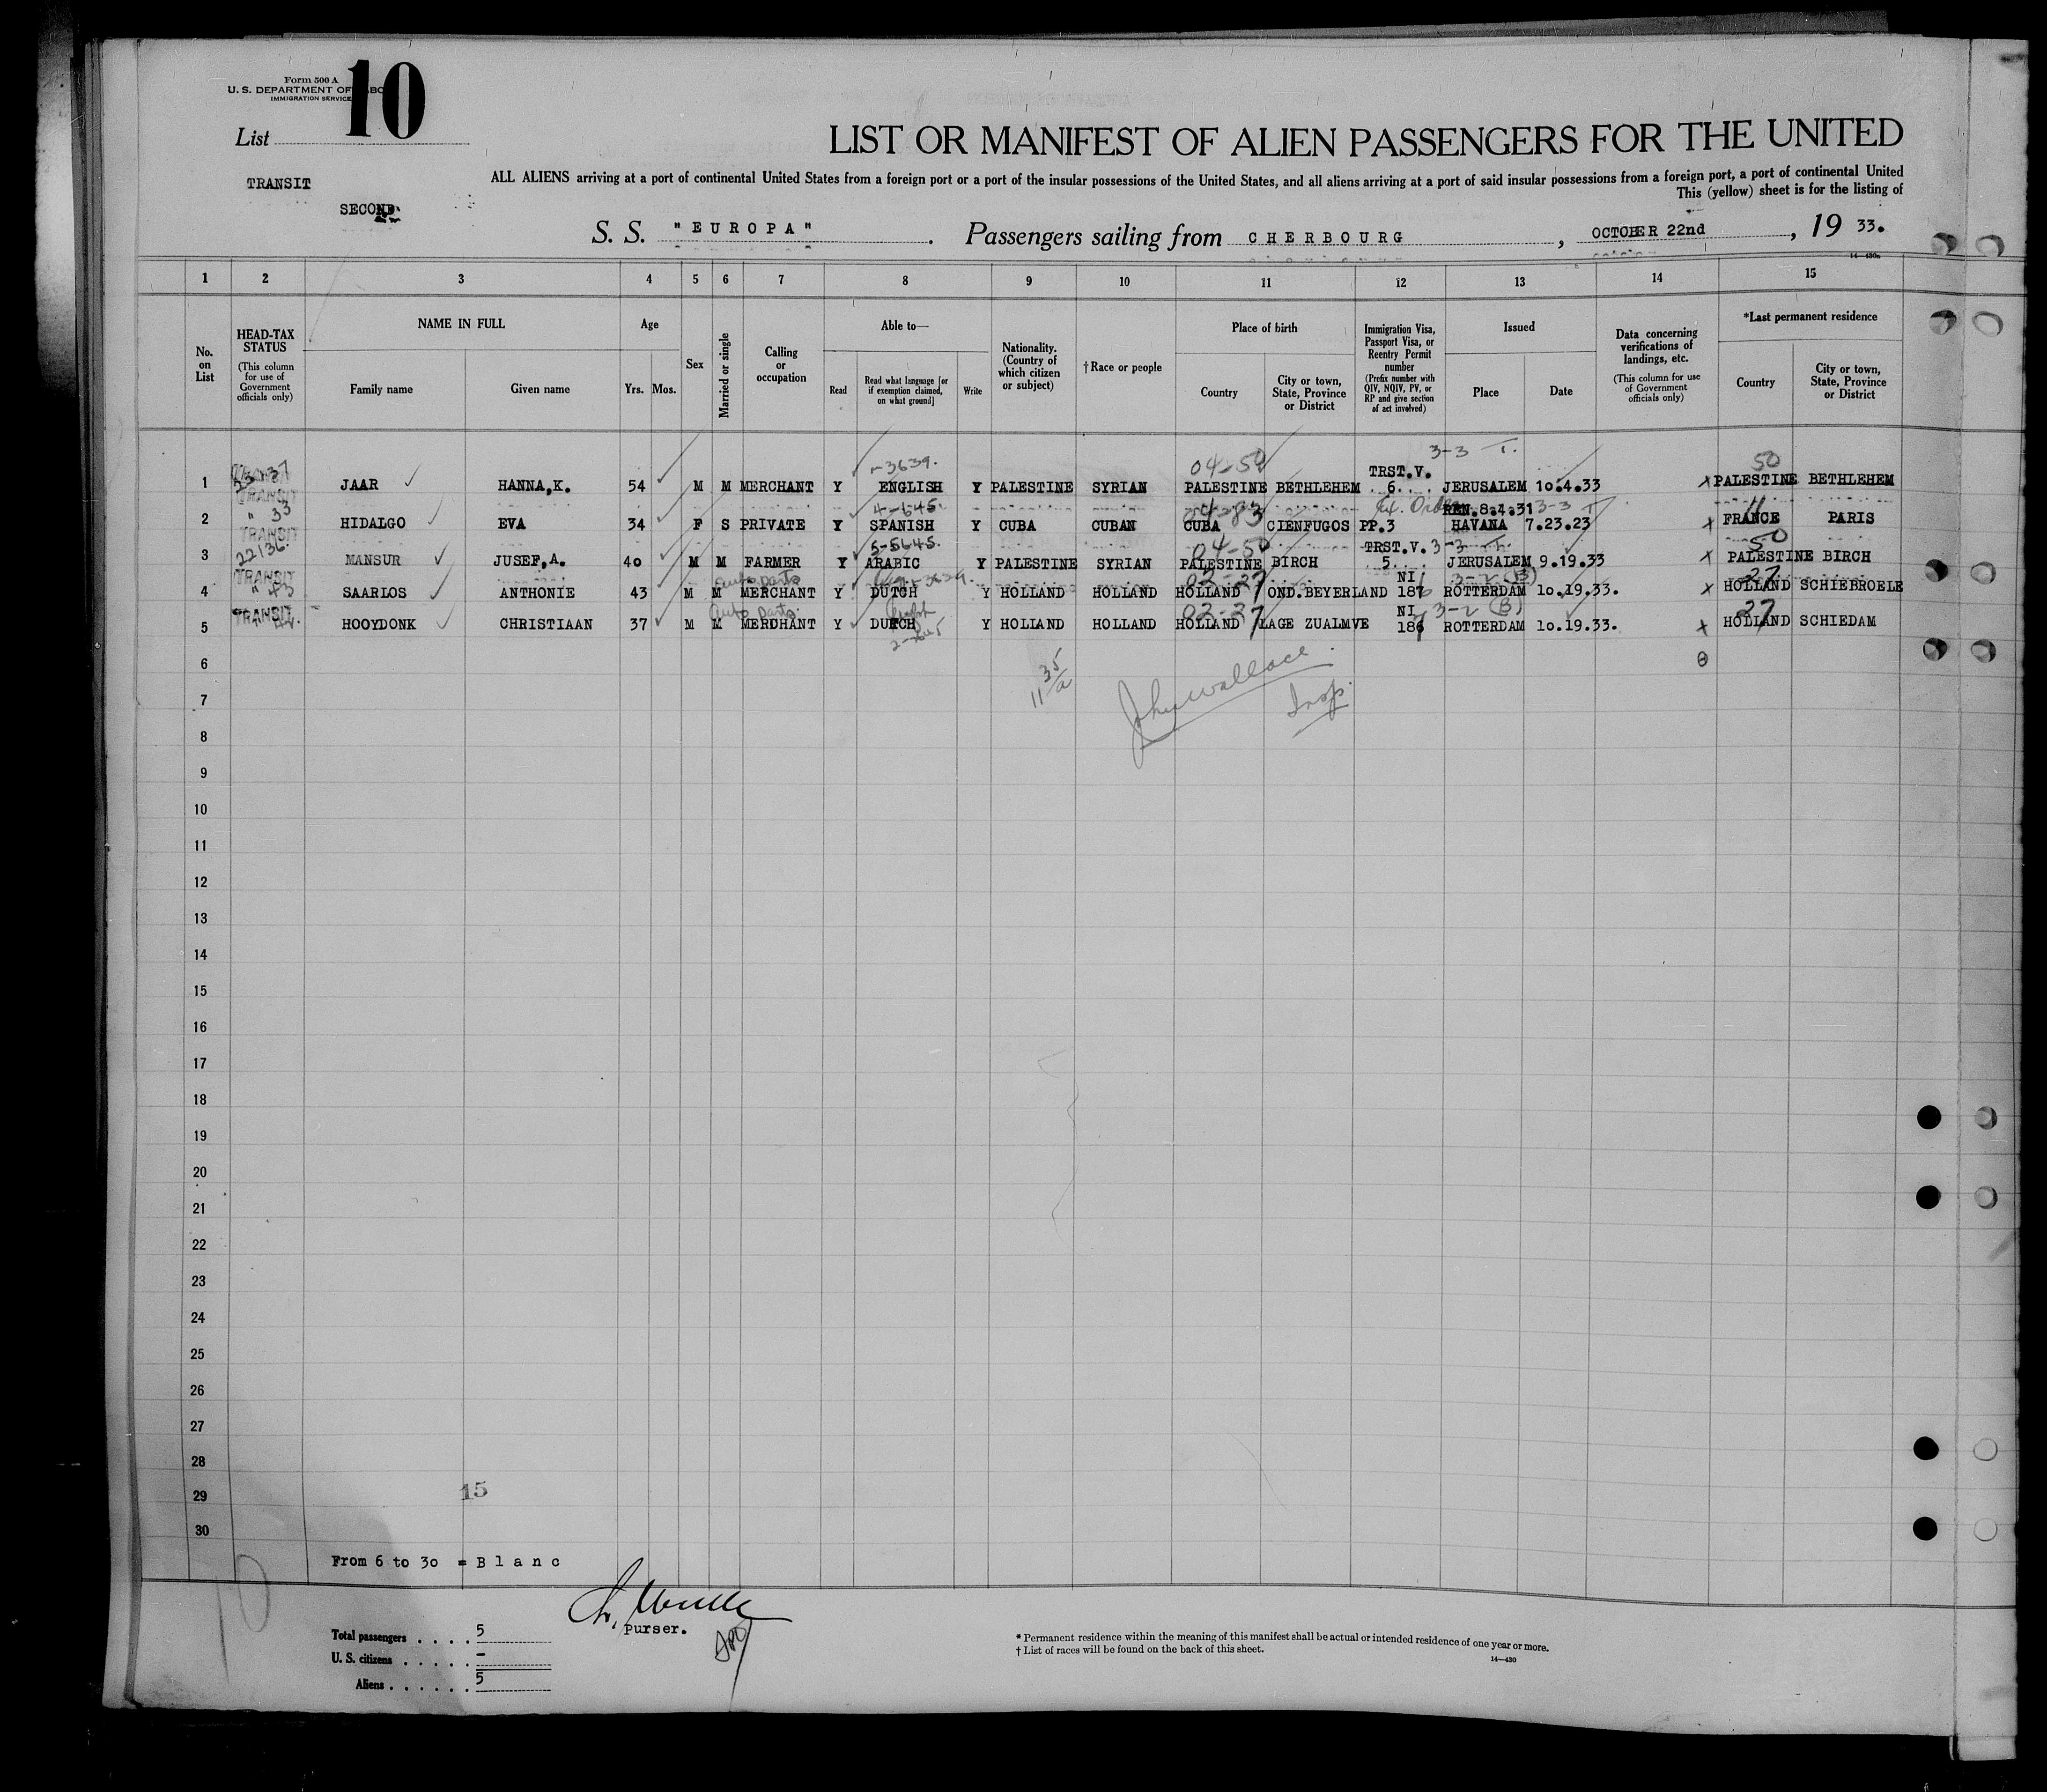 Form 500 A
U. S. DEPARTMENT OF LABOR
IMMIGRATION SERVICE
List 10
TRANSIT
SECOND
LIST OR MANIFEST OF ALIEN PASSENGERS FOR THE UNITED
ALL ALIENS arriving at a port of continental United States from a foreign port or a port of the insular possessions of the United States, and all aliens arriving at a port of said insular possessions from a foreign port, a port of continental United
This (yellow) sheet is for the listing of
S. S. "EUROPA". Passengers sailing from CHERBOURG, OCTOBER 22nd, 19 33.
14—430a
1 2 3 4 5 6 7 8 9 10 11 12 13 14 15
No. on List
HEAD-TAX STATUS
(This column for use of Government officials only)
NAME IN FULL
Family name
Given name
Age
Yrs. Mos.
Sex
Married or single
Calling or occupation
Able to—
Read
Read what language [or if exemption claimed, on what ground]
Write
Nationality. (Country of which citizen or subject)
†Race or people
Place of birth
Country
City or town, State, Province or District
Immigration Visa, Passport Visa, or Reentry Permit number
(Prefix number with QIV, NQIV, PV, or RP and give section of act involved)
Issued
Place
Date
Data concerning verifications of landings, etc.
(This column for use of Government officials only)
*Last permanent residence
Country
City or town, State, Province or District
3-3 T.
3639. 04-50 TRST.V. 50
1 TRANSIT JAAR HANNA,K. 54 M M MERCHANT Y ENGLISH Y PALESTINE SYRIAN PALESTINE BETHLEHEM 6 JERUSALEM 10.4.33 X PALESTINE BETHLEHEM
4-645. REN.8.4.31 3-3 T
2 TRANSIT " 33 HIDALGO EVA 34 F S PRIVATE Y SPANISH Y CUBA CUBAN CUBA CIENFUGOS PP.3 HAVANA 7.23.23 X FRANCE PARIS
5-5645. 04-50 TRST.V. 3-3 T. 50
3 22136. MANSUR JUSEF,A. 40 M M FARMER Y ARABIC Y PALESTINE SYRIAN PALESTINE BIRCH 5 JERUSALEM 9.19.33 X PALESTINE BIRCH
auto parts 02-27 NI 3-2 (B) 27
4 TRANSIT " 43 SAARLOS ANTHONIE 43 M M MERCHANT Y DUTCH Y HOLLAND HOLLAND HOLLAND OND.BEYERLAND 186 ROTTERDAM 10.19.33. X HOLLAND SCHIEBROELE
auto parts 02-27 NI 3-2 (B) 27
5 TRANSIT HOOYDONK CHRISTIAAN 37 M M MERCHANT Y DUTCH Y HOLLAND HOLLAND HOLLAND LAGE ZUALMVE 187 ROTTERDAM 10.19.33. X HOLLAND SCHIEDAM
6
7
John Wallace
Insp.
8
9
10
11
12
13
14
15
16
17
18
19
20
21
22
23
24
25
26
27
28
29
15
30
From 6 to 30 = Blanc
Purser.
Total passengers . . . . 5
U. S. citizens . . . . . –
Aliens . . . . . . 5
* Permanent residence within the meaning of this manifest shall be actual or intended residence of one year or more.
† List of races will be found on the back of this sheet.
14—430